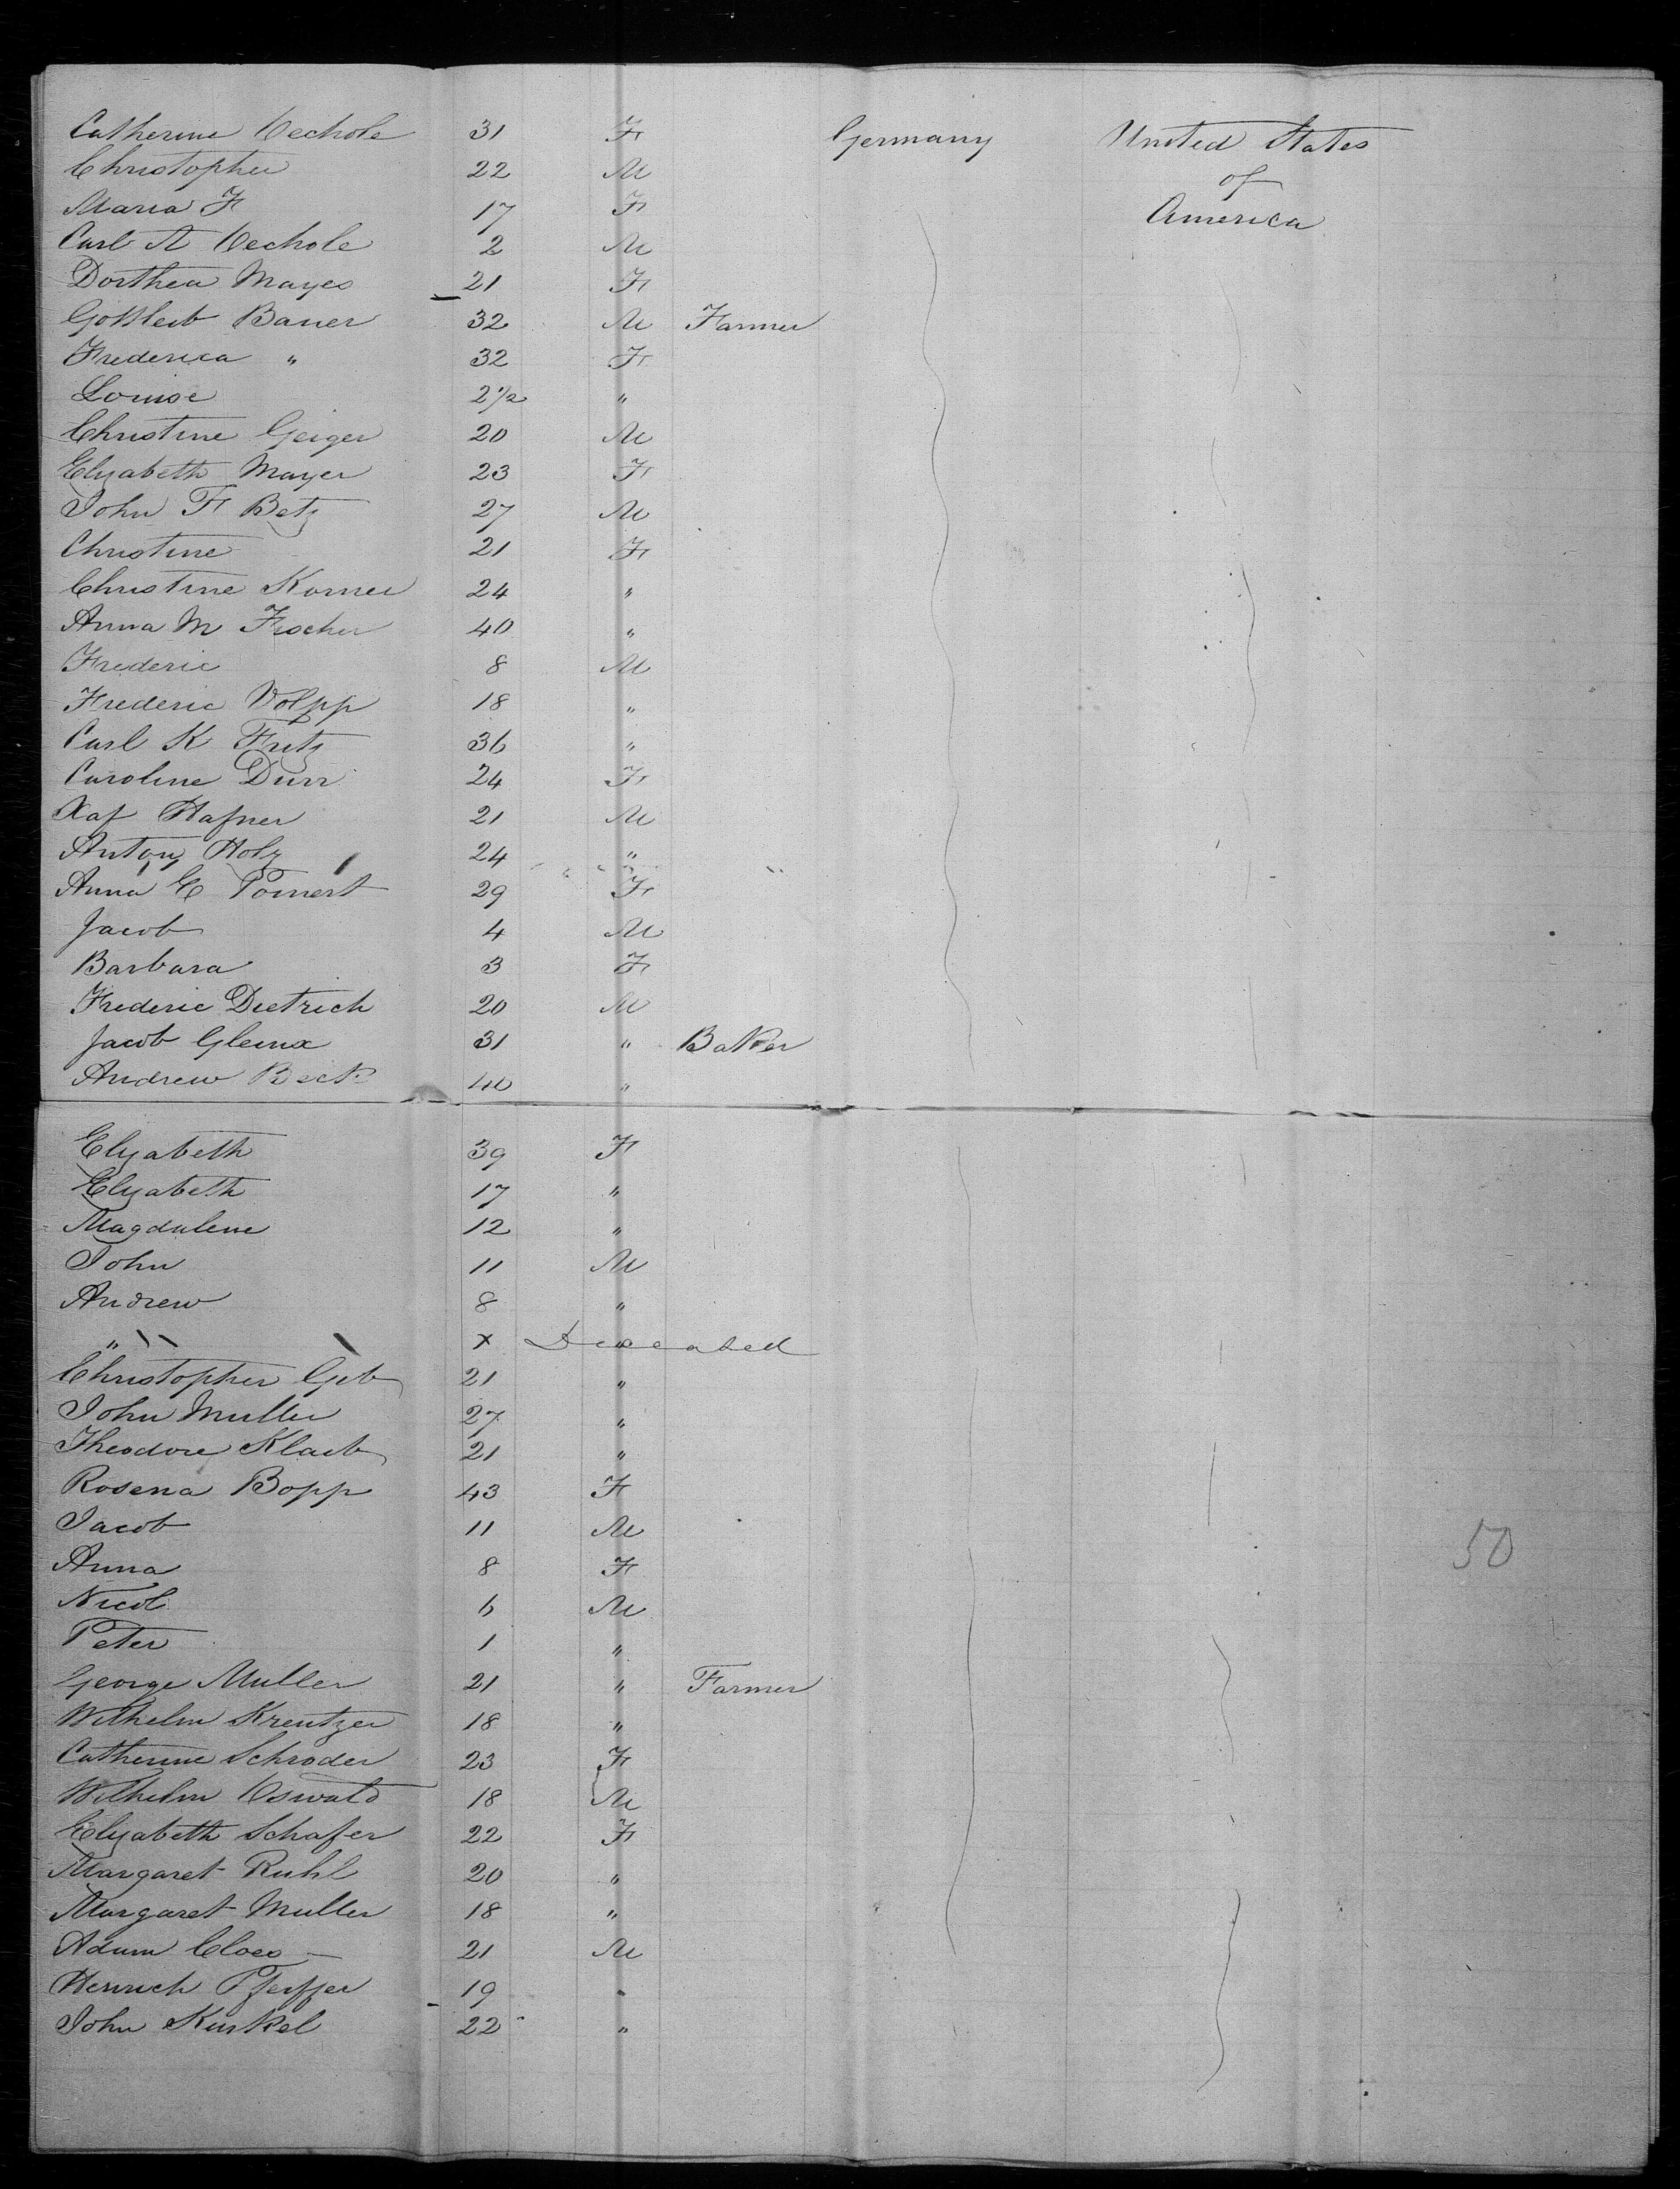 Catherine Oechsle 31 F Germany United States
Christopher 22 M of
Maria F 17 F America
Carl A Oechsle 2 M
Dorthea Mayes 21 F
Gottleib Bauer 32 M Farmer
Frederica " 32 F
Louise 2 1/2 "
Christine Geiger 20 M
Elizabeth Mayer 23 F
John F Betz 27 M
Christine 21 F
Christine Korner 24 "
Anna M Fischer 40 "
Frederic 8 M
Frederic Volpp 18 "
Carl K Fritz 36 "
Caroline Durr 24 F
Xaf Hafner 21 M
Anton Holz 24 "
Anna E 29 F
Jacob 4 M
Barbara 3 F
Frederic Dietrich 20 M
Jacob 31 " Baker
Andrew Beck 40 "
Elizabeth 39 F
Elizabeth 17 "
Magdalene 12 "
John 11 M
Andrew 8 "
" x Deceased
Christopher Geb 21 "
John Muller 27 "
Theodore Klaib 21 "
Rosena Bopp 43 F
Jacob 11 M
Anna 8 F 50
Nicol 6 M
Peter 1 "
George Muller 21 " Farmer
Wilhelm Kreutzer 18 "
Catherine Schroder 23 F
Wilhelm Oswald 18 M
Elizabeth Schafer 22 F
Margaret Ruhl 20 "
Margaret Muller 18 "
Adam Cloes 21 M
Henrich Pfeiffer 19 "
John Kunkel 22 "